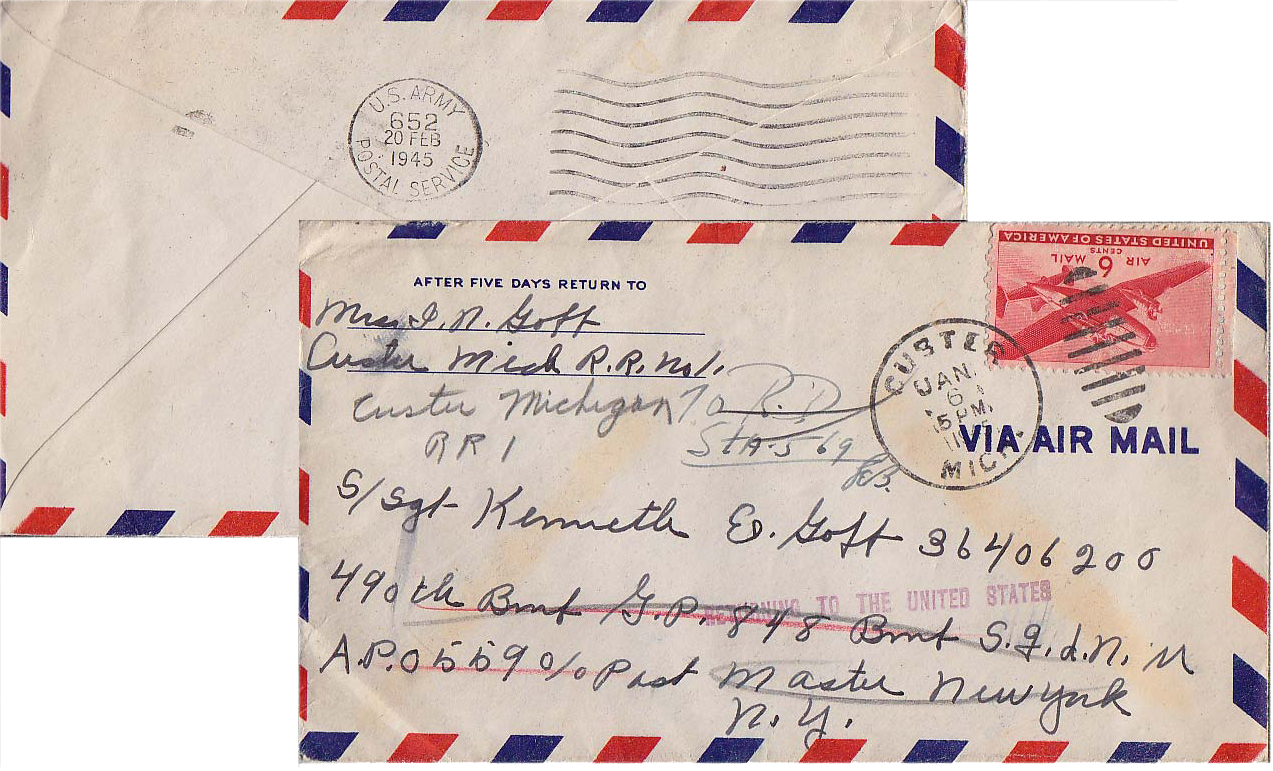 U.S. ARMY
652
20 FEB
1945
POSTAL SERVICE
UNITED STATES OF AMERICA
CENTS
AIR 6 MAIL
AFTER FIVE DAYS RETURN TO
Mrs I. N. Goff
Custer Mich R.R. No 1.
Custer Michigan
RR 1
To R.D
STA-569
CUSTER
JAN.
6
5 PM.
MICH.
VIA AIR MAIL
S/Sgt Kenneth E. Goff 36406200
RETURNING TO THE UNITED STATES
490th Bmb G.P. 848 Bmb S.q.d.N.
A.P.O 559 c/o Post Master New York
N.Y.